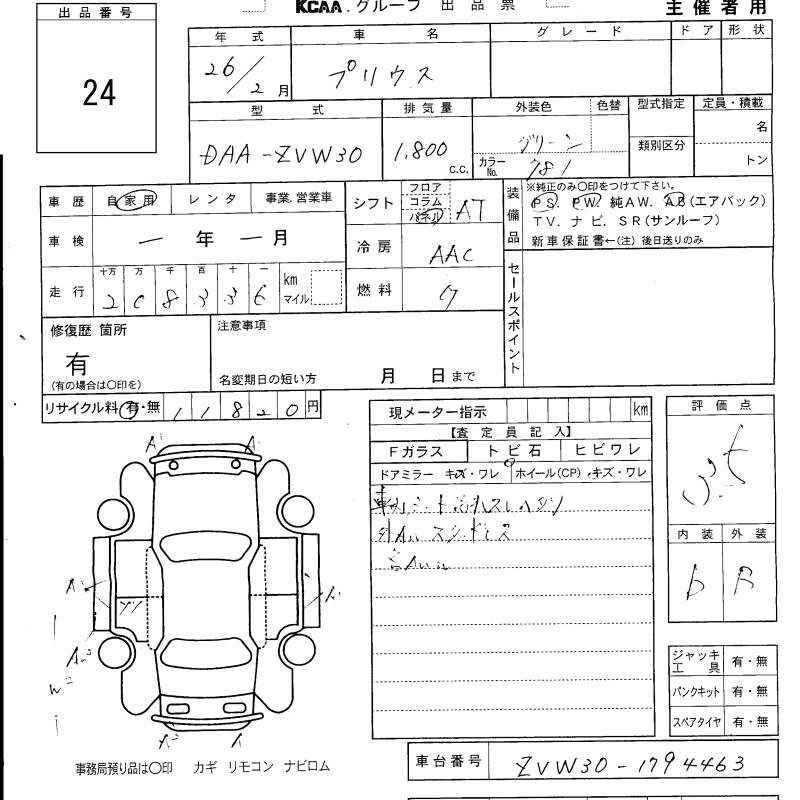 出品番号
24
KCAA.グループ 出品票
主催者用
年式 車名 グレード ドア 形状
26/2月 プリウス
型式 排気量 外装色 色替 型式指定 定員・積載
DAA-ZVW30 1,800 c.c. グリーン 類別区分 名
カラーNo. 781 トン
車歴 自家用 レンタ 事業.営業車
シフト フロア コラム パネル AT
装備品
※純正のみ〇印をつけて下さい。
PS. PW. 純AW. AB(エアバック)
TV. ナビ. SR(サンルーフ)
新車保証書←(注)後日送りのみ
車検 ー年ー月
冷房 AAC
走行 十万 万 千 百 十 一 km マイル
208336
燃料 ガ
セールスポイント
修復歴 箇所
有
(有の場合は〇印を)
注意事項
名変期日の短い方 月 日まで
リサイクル料 有・無 11820円
現メーター指示 km
【査定員記入】
Fガラス トビ石 ヒビワレ
ドアミラー キズ・ワレ ホイール(CP) キズ・ワレ
評価点
3.5
内装 外装
D B
ジャッキ工具 有・無
パンクキット 有・無
スペアタイヤ 有・無
事務局預り品は〇印 カギ リモコン ナビロム
車台番号 ZVW30-1794463